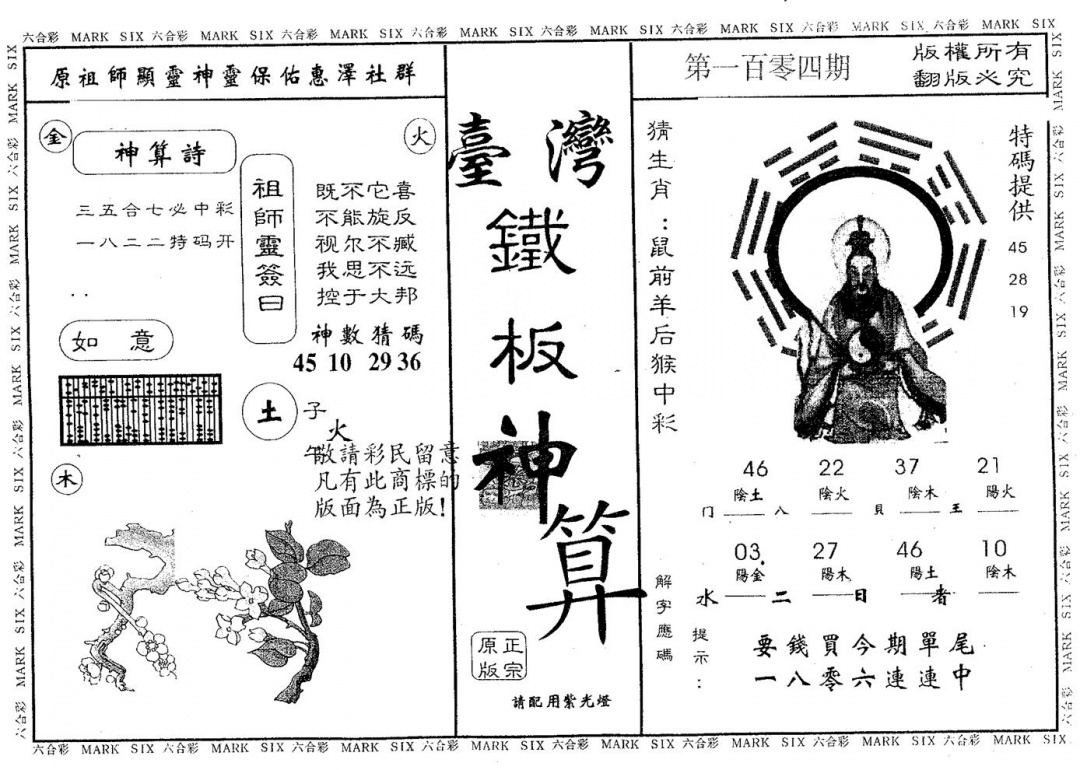 六合彩 MARK SIX 六合彩 MARK SIX 六合彩 MARK SIX 六合彩 MARK SIX 六合彩 MARK SIX 六合彩 MARK SIX 六合彩 MARK SIX 六合彩 MARK SIX
原祖師顯靈神靈保佑惠澤社群
金
神算詩
火
三五合七必中彩
一八二二特码开
祖師靈簽曰
既不它喜
不能旋反
视尔不臧
我思不远
控于大邦
神數猜碼
45 10 29 36
如意
土
子
火
午
木
敬請彩民留意
凡有此商標的
版面為正版!
臺灣
鐵
板
神
算
正宗
原版
請配用紫光燈
第一百零四期
版權所有
翻版必究
猜生肖:鼠前羊后猴中彩
特碼提供
45
28
19
46 22 37 21
陰土 陰火 陰木 陽火
门 八 貝 王
03 27 46 10
陽金 陽木 陽土 陰木
水 二 日 者
解字應碼
提示:
要錢買今期單尾
一八零六連連中
六合彩 MARK SIX 六合彩 MARK SIX 六合彩 MARK SIX 六合彩 MARK SIX 六合彩 MARK SIX 六合彩 MARK SIX 六合彩 MARK SIX 六合彩 MARK SIX